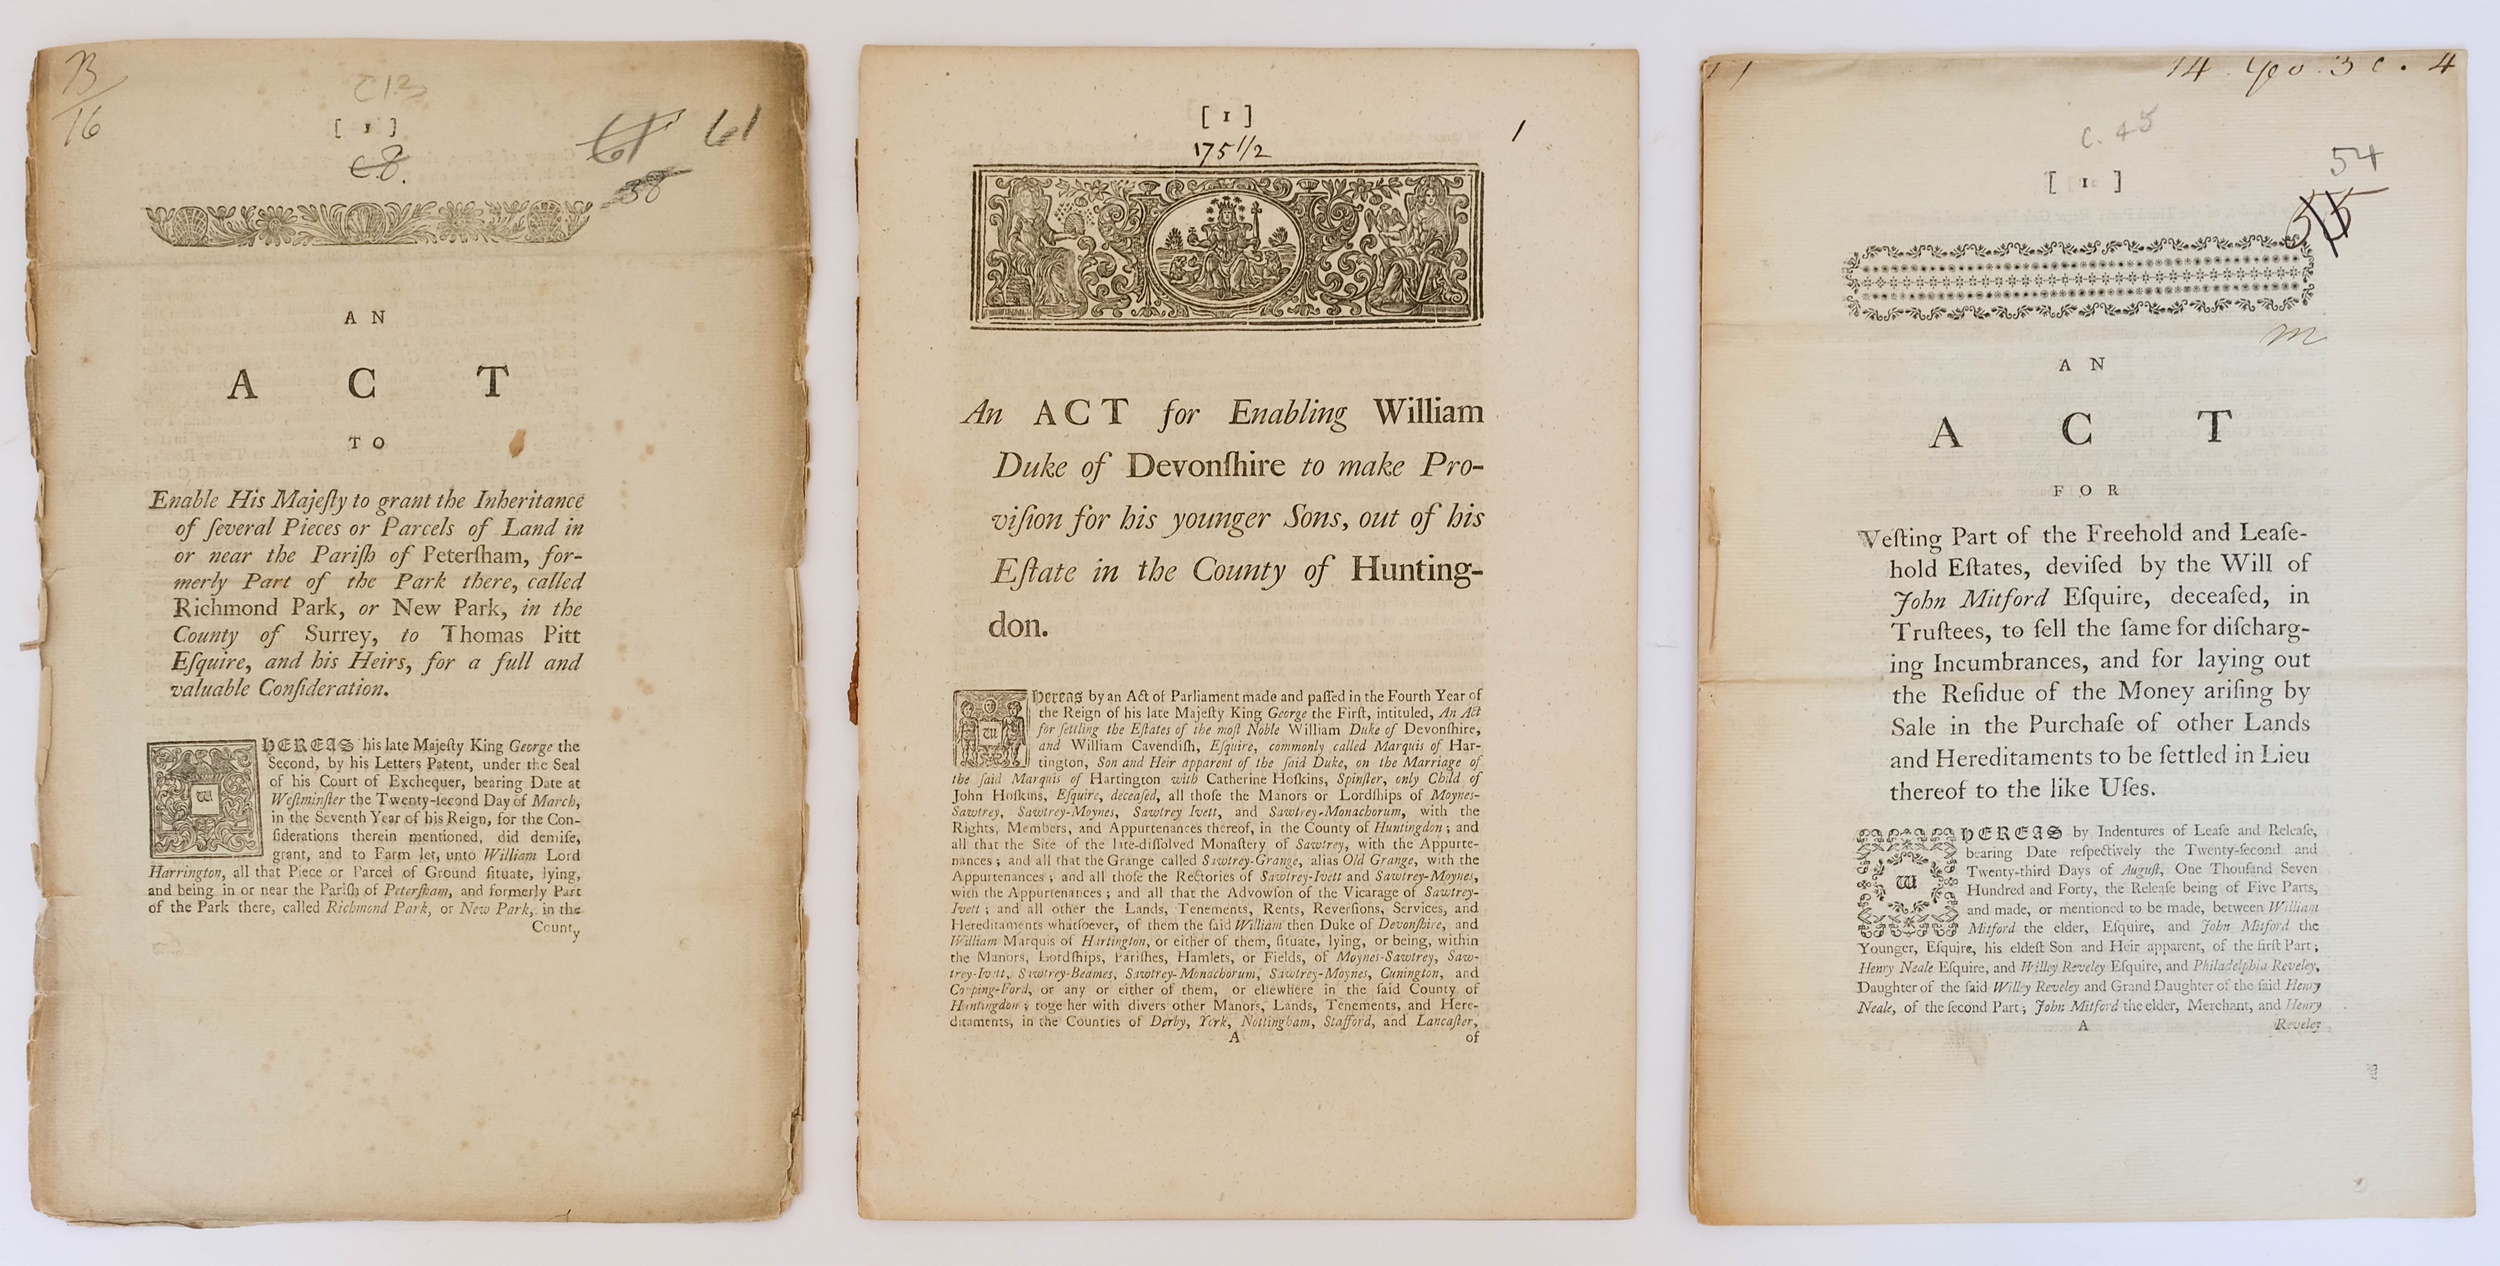 B
16
C13
[ 1 ]
c8.
61 61
58
AN
ACT
TO
Enable His Majeſty to grant the Inheritance
of ſeveral Pieces or Parcels of Land in
or near the Pariſh of Peterſham, for-
merly Part of the Park there, called
Richmond Park, or New Park, in the
County of Surrey, to Thomas Pitt
Eſquire, and his Heirs, for a full and
valuable Conſideration.
WHEREAS his late Majeſty King George the
Second, by his Letters Patent, under the Seal
of his Court of Exchequer, bearing Date at
Weſtminſter the Twenty-ſecond Day of March,
in the Seventh Year of his Reign, for the Con-
ſiderations therein mentioned, did demiſe,
grant, and to Farm let, unto William Lord
Harrington, all that Piece or Parcel of Ground ſituate, lying,
and being in or near the Pariſh of Peterſham, and formerly Part
of the Park there, called Richmond Park, or New Park, in the
County
[ 1 ]
1
175 1/2
An ACT for Enabling William
Duke of Devonſhire to make Pro-
viſion for his younger Sons, out of his
Eſtate in the County of Hunting-
don.
Whereas by an Act of Parliament made and paſſed in the Fourth Year of
the Reign of his late Majeſty King George the Firſt, intituled, An Act
for ſettling the Eſtates of the moſt Noble William Duke of Devonſhire,
and William Cavendiſh, Eſquire, commonly called Marquis of Har-
tington, Son and Heir apparent of the ſaid Duke, on the Marriage of
the ſaid Marquis of Hartington with Catherine Hoſkins, Spinſter, only Child of
John Hoſkins, Eſquire, deceaſed, all thoſe the Manors or Lordſhips of Moynes-
Sawtrey, Sawtrey-Moynes, Sawtrey Ivett, and Sawtrey-Monachorum, with the
Rights, Members, and Appurtenances thereof, in the County of Huntingdon; and
all that the Site of the late-diſſolved Monaſtery of Sawtrey, with the Appurte-
nances; and all that the Grange called Sawtrey-Grange, alias Old Grange, with the
Appurtenances; and all thoſe the Rectories of Sawtrey-Ivett and Sawtrey-Moynes,
with the Appurtenances; and all that the Advowſon of the Vicarage of Sawtrey-
Ivett; and all other the Lands, Tenements, Rents, Reverſions, Services, and
Hereditaments whatſoever, of them the ſaid William then Duke of Devonſhire, and
William Marquis of Hartington, or either of them, ſituate, lying, or being, within
the Manors, Lordſhips, Pariſhes, Hamlets, or Fields, of Moynes-Sawtrey, Saw-
trey-Ivett, Sawtrey-Beames, Sawtrey-Monachorum, Sawtrey-Moynes, Cunington, and
Copping-Ford, or any or either of them, or elſewhere in the ſaid County of
Huntingdon; together with divers other Manors, Lands, Tenements, and Here-
ditaments, in the Counties of Derby, York, Nottingham, Stafford, and Lancaſter,
A of
14 Geo 3 c. 4
c. 45
54
55
[ 1 ]
m
AN
ACT
FOR
Veſting Part of the Freehold and Leaſe-
hold Eſtates, deviſed by the Will of
John Mitford Eſquire, deceaſed, in
Truſtees, to ſell the ſame for diſcharg-
ing Incumbrances, and for laying out
the Reſidue of the Money ariſing by
Sale in the Purchaſe of other Lands
and Hereditaments to be ſettled in Lieu
thereof to the like Uſes.
WHEREAS by Indentures of Leaſe and Releaſe,
bearing Date reſpectively the Twenty-ſecond and
Twenty-third Days of Auguſt, One Thouſand Seven
Hundred and Forty, the Releaſe being of Five Parts,
and made, or mentioned to be made, between William
Mitford the elder, Eſquire, and John Mitford the
Younger, Eſquire, his eldeſt Son and Heir apparent, of the firſt Part;
Henry Neale Eſquire, and Willey Reveley Eſquire, and Philadelphia Reveley,
Daughter of the ſaid Willey Reveley and Grand Daughter of the ſaid Henry
Neale, of the ſecond Part; John Mitford the elder, Merchant, and Henry
A Reveley